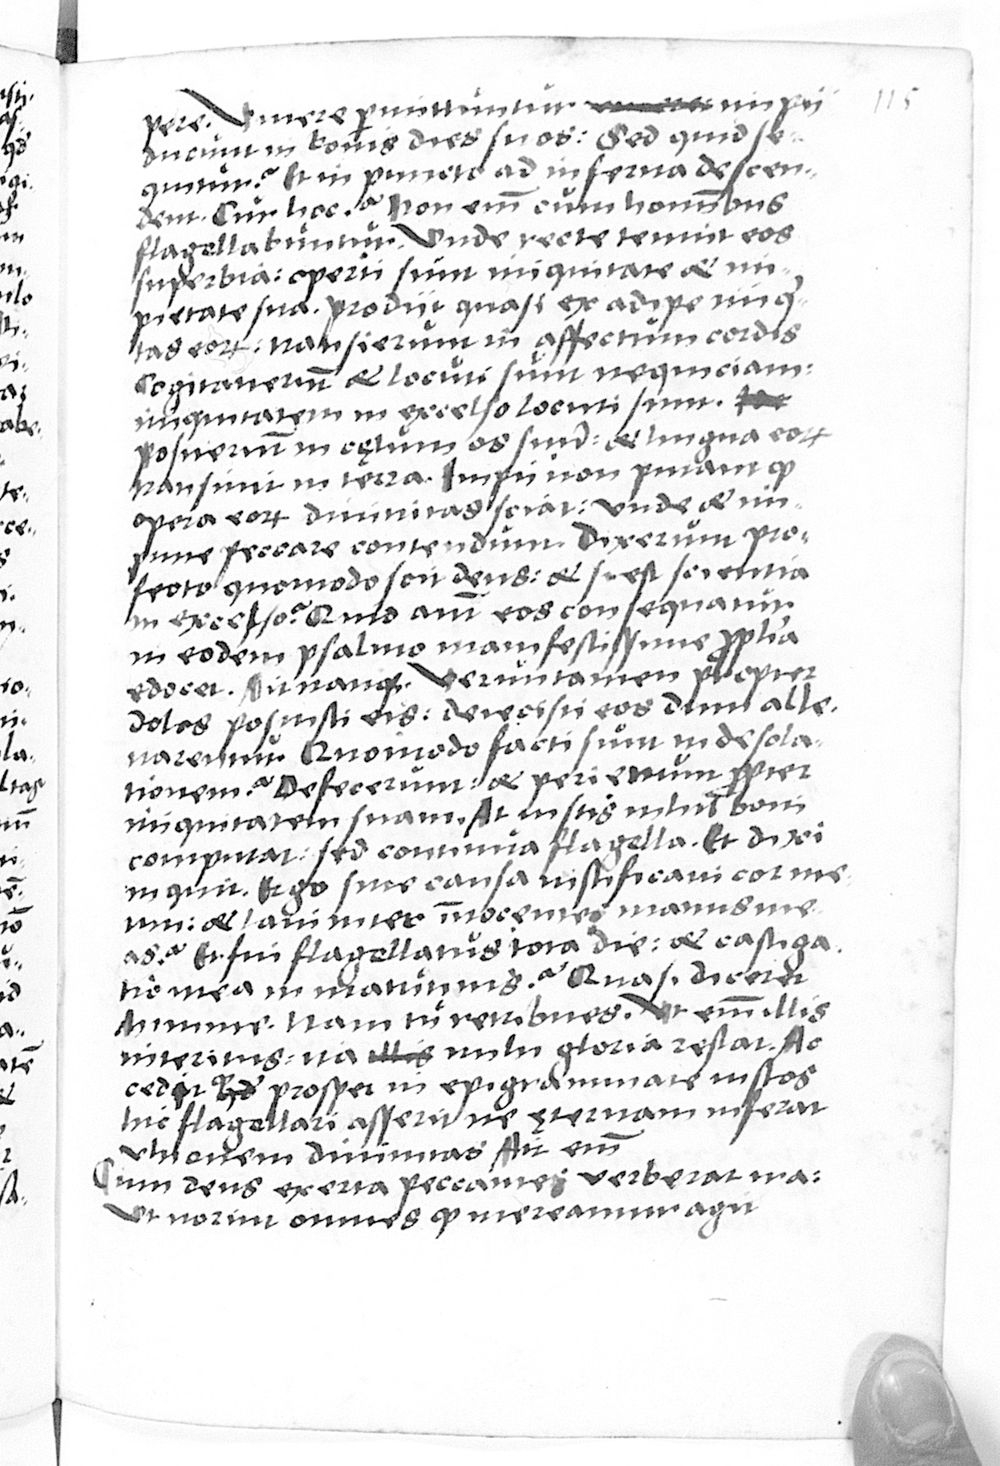 115
pere. Viuere p̱mittuntur impij
ducunt in bonis dies suos: Sed quid se-
quitur? Et in puncto ad inferna descen-
dent. Cur hoc? Non em̄ cum homībus
flagellabuntur. Vnde recte tenuit eos
superbia: operti sunt iniquitate & im-
pietate sua. Prodijt quasi ex adipe iniq̇-
tas eoꝝ: transierunt in affectum cordis
Cogitauerūt & locuti sunt nequiciam:
iniquitatem in excelso locuti sunt.
posuerūt in cęlum os suū: & lingua eoꝝ
transiuit in terra. Impij non putant ꝙ
opera eoꝝ diuinitas sciat: vnde & im-
pune peccare contendunt. Dixerunt pro-
fecto quomodo scit deus: & si est scientia
in excelso? Quid aūt eos consequatur
in eodem psalmo manifestissime ꝓph̄a
edocet. Ait nanqꝫ. Veruntamen propter
dolos posuisti eis: deiecisti eos dum alle-
uarentur. Quomodo facti sunt in desola-
tionem? Defecerunt: & perierunt ꝓpter
iniquitatem suam. At iustis nihil boni
computat: sed continua flagella. Et dixi
inquit. Ergo sine causa iustificaui cor me-
um: & laui inter īnocentes manus me-
as? Et fui flagellatus tota die: & castiga-
tio mea in matutinis? Quasi diceret
Minime. Nam tu retribues. Vt em̄ illis
interitus: ita mihi gloria restat. Ac
cedit prosper in epigrammate iustos
hic flagellari asserit ne ęternam inferat
vltionem diuinitas Ait em̄
Cum deus exerta peccantes verberat ira:
Vt norint omnes ꝙ mereantur agit